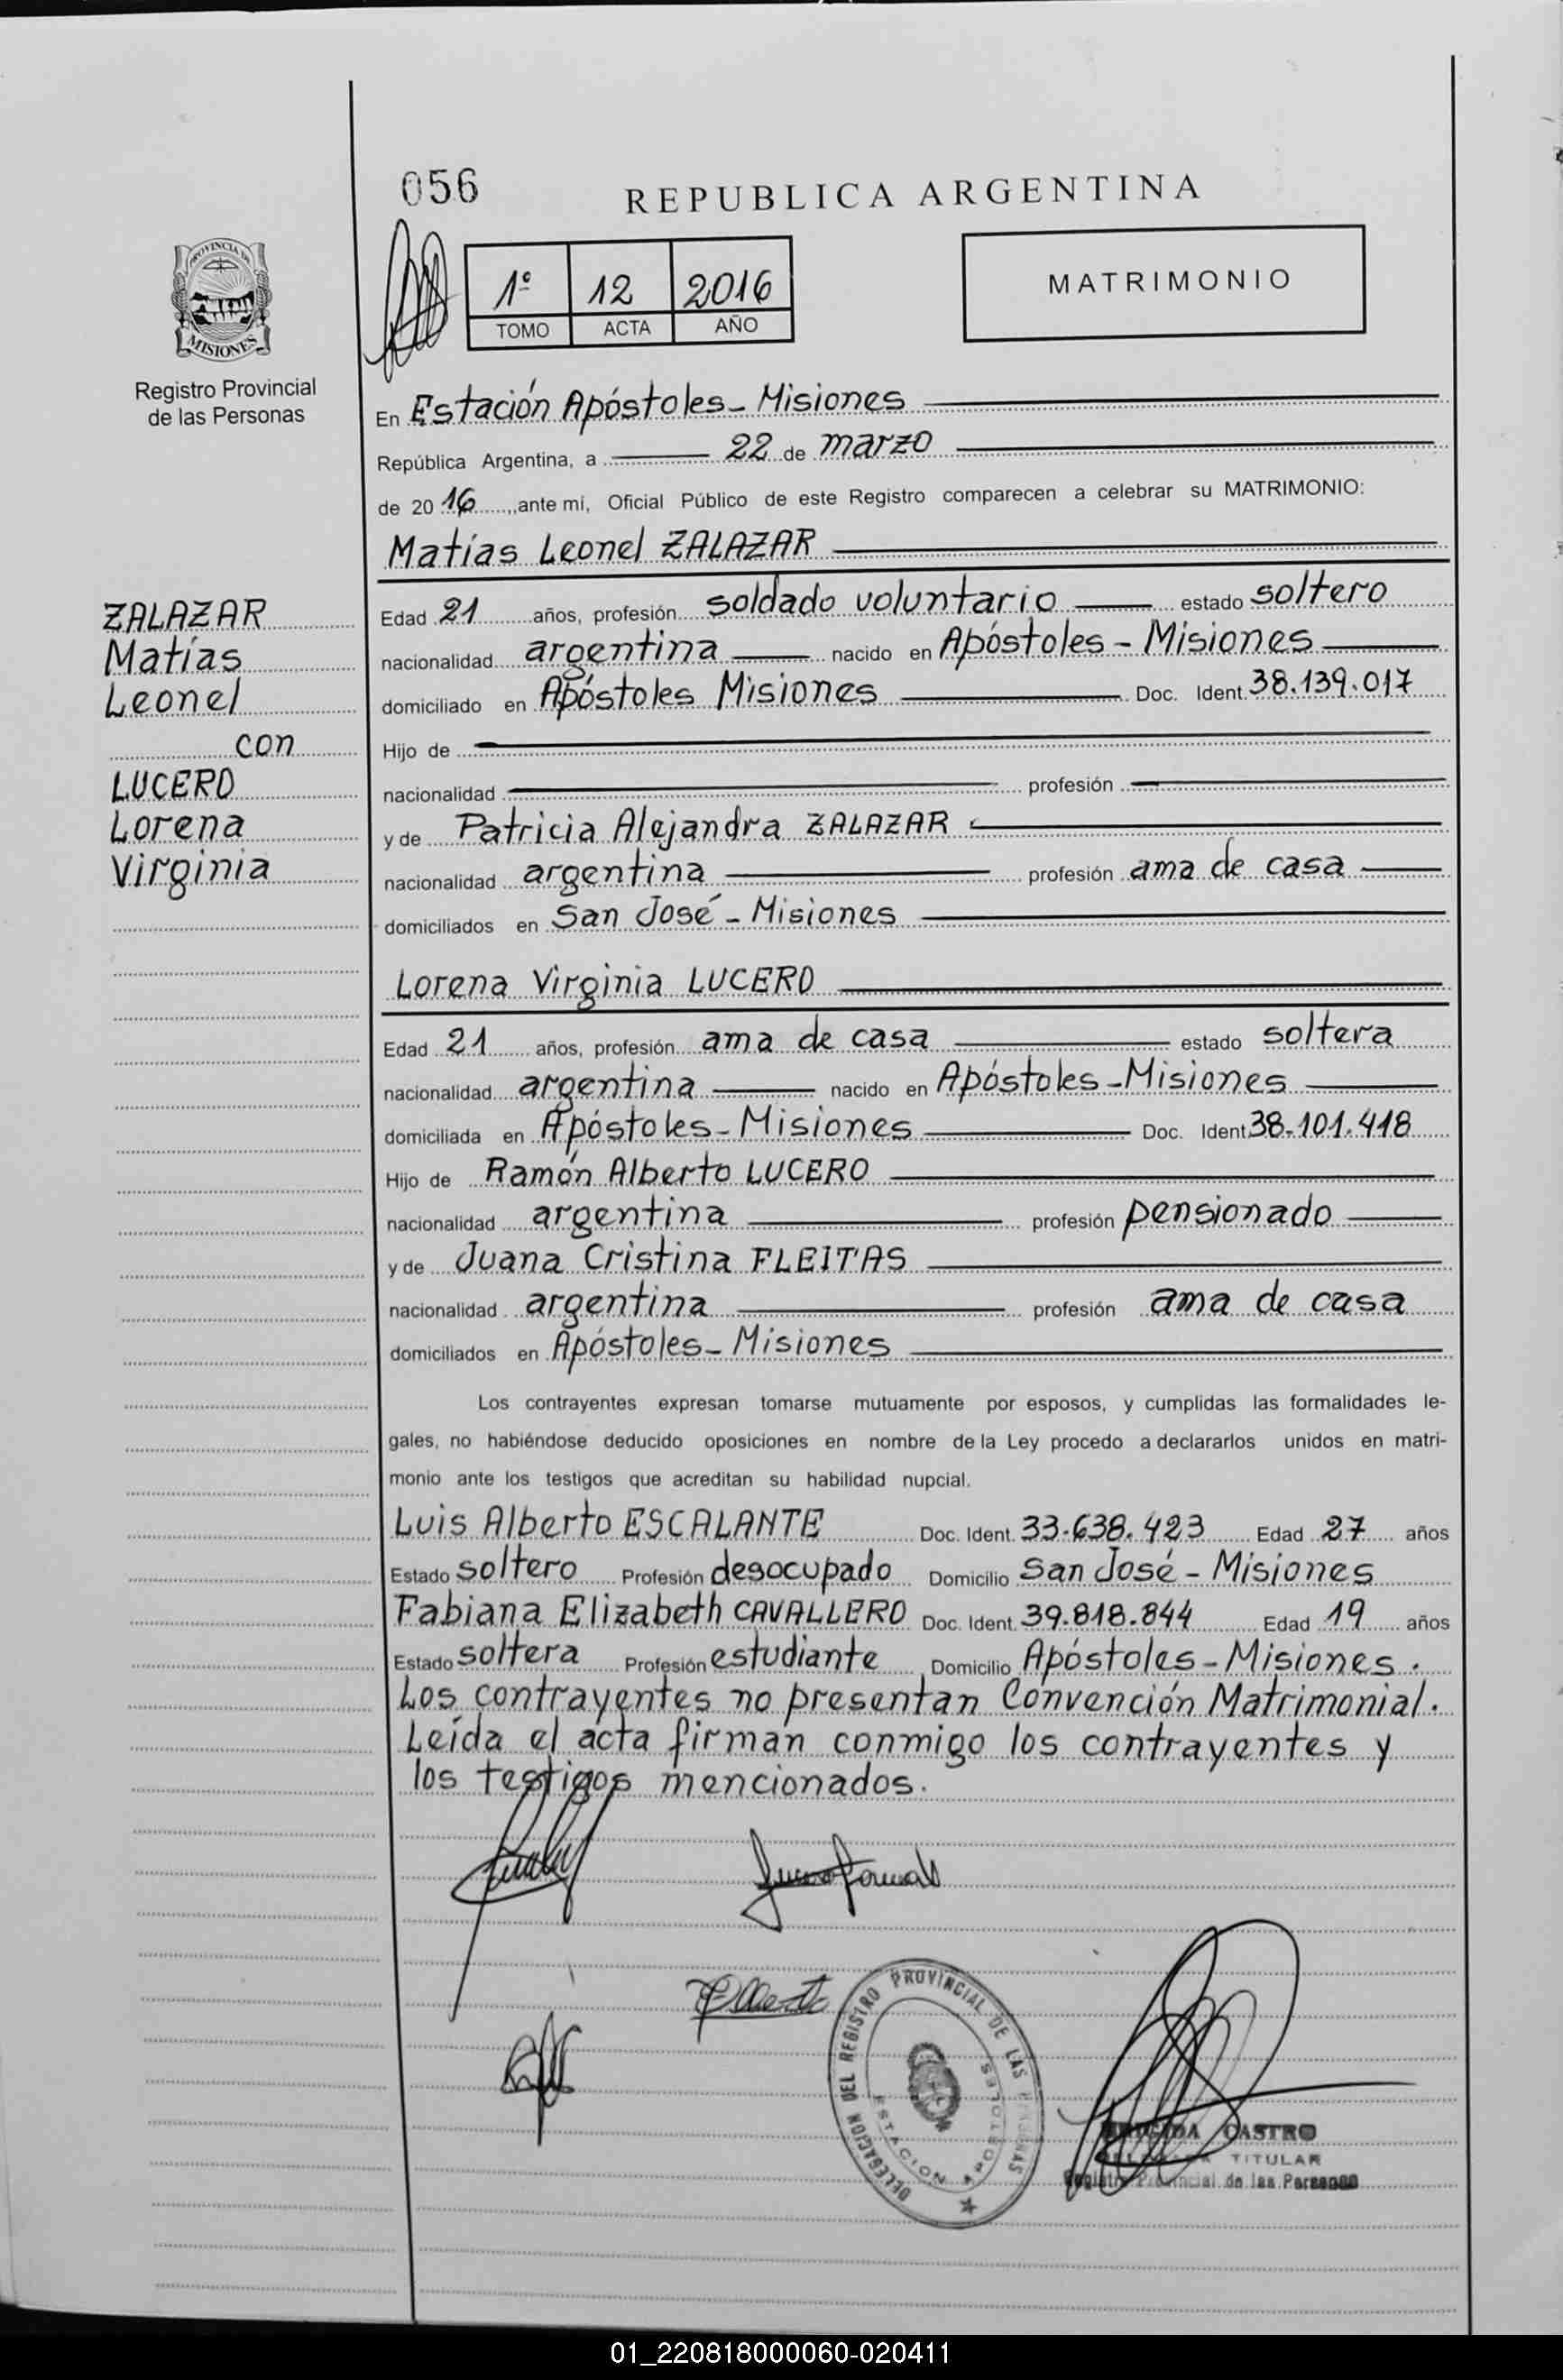 056
REPUBLICA ARGENTINA
PROVINCIA DE
MISIONES
1º 12 2016
TOMO ACTA AÑO
MATRIMONIO
Registro Provincial
de las Personas
En Estación Apóstoles - Misiones
República Argentina, a 22 de marzo
de 2016, ante mi, Oficial Público de este Registro comparecen a celebrar su MATRIMONIO:
Matías Leonel ZALAZAR
ZALAZAR
Matías
Leonel
con
LUCERO
Lorena
Virginia
Edad 21 años, profesión soldado voluntario estado soltero
nacionalidad argentina nacido en Apóstoles - Misiones
domiciliado en Apóstoles Misiones Doc. Ident. 38.139.017
Hijo de
nacionalidad profesión
y de Patricia Alejandra ZALAZAR
nacionalidad argentina profesión ama de casa
domiciliados en San José - Misiones
Lorena Virginia LUCERO
Edad 21 años, profesión ama de casa estado soltera
nacionalidad argentina nacido en Apóstoles - Misiones
domiciliada en Apóstoles - Misiones Doc. Ident. 38.101.418
Hijo de Ramón Alberto LUCERO
nacionalidad argentina profesión pensionado
y de Juana Cristina FLEITAS
nacionalidad argentina profesión ama de casa
domiciliados en Apóstoles - Misiones
Los contrayentes expresan tomarse mutuamente por esposos, y cumplidas las formalidades le-
gales, no habiéndose deducido oposiciones en nombre de la Ley procedo a declararlos unidos en matri-
monio ante los testigos que acreditan su habilidad nupcial.
Luis Alberto ESCALANTE Doc. Ident. 33.638.423 Edad 27 años
Estado soltero Profesión desocupado Domicilio San José - Misiones
Fabiana Elizabeth CAVALLERO Doc. Ident. 39.818.844 Edad 19 años
Estado soltera Profesión estudiante Domicilio Apóstoles - Misiones.
Los contrayentes no presentan Convención Matrimonial.
Leída el acta firman conmigo los contrayentes y
los testigos mencionados.
DELEGACION DEL REGISTRO PROVINCIAL DE LAS PERSONAS
ESTACION APOSTOLES
CASTRO
TITULAR
Registro Provincial de las Personas
01_220818000060-020411